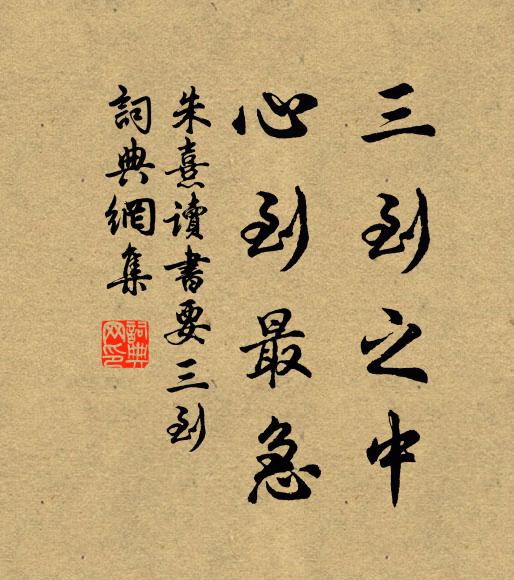 三到之中
心到最急
朱熹讀書要三到
詞典網集
詞典
网印